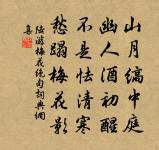 山月縞中庭
幽人酒初醒
不是怯清寒
愁蹋梅花影
陸游梅花絕句詞典網
喜